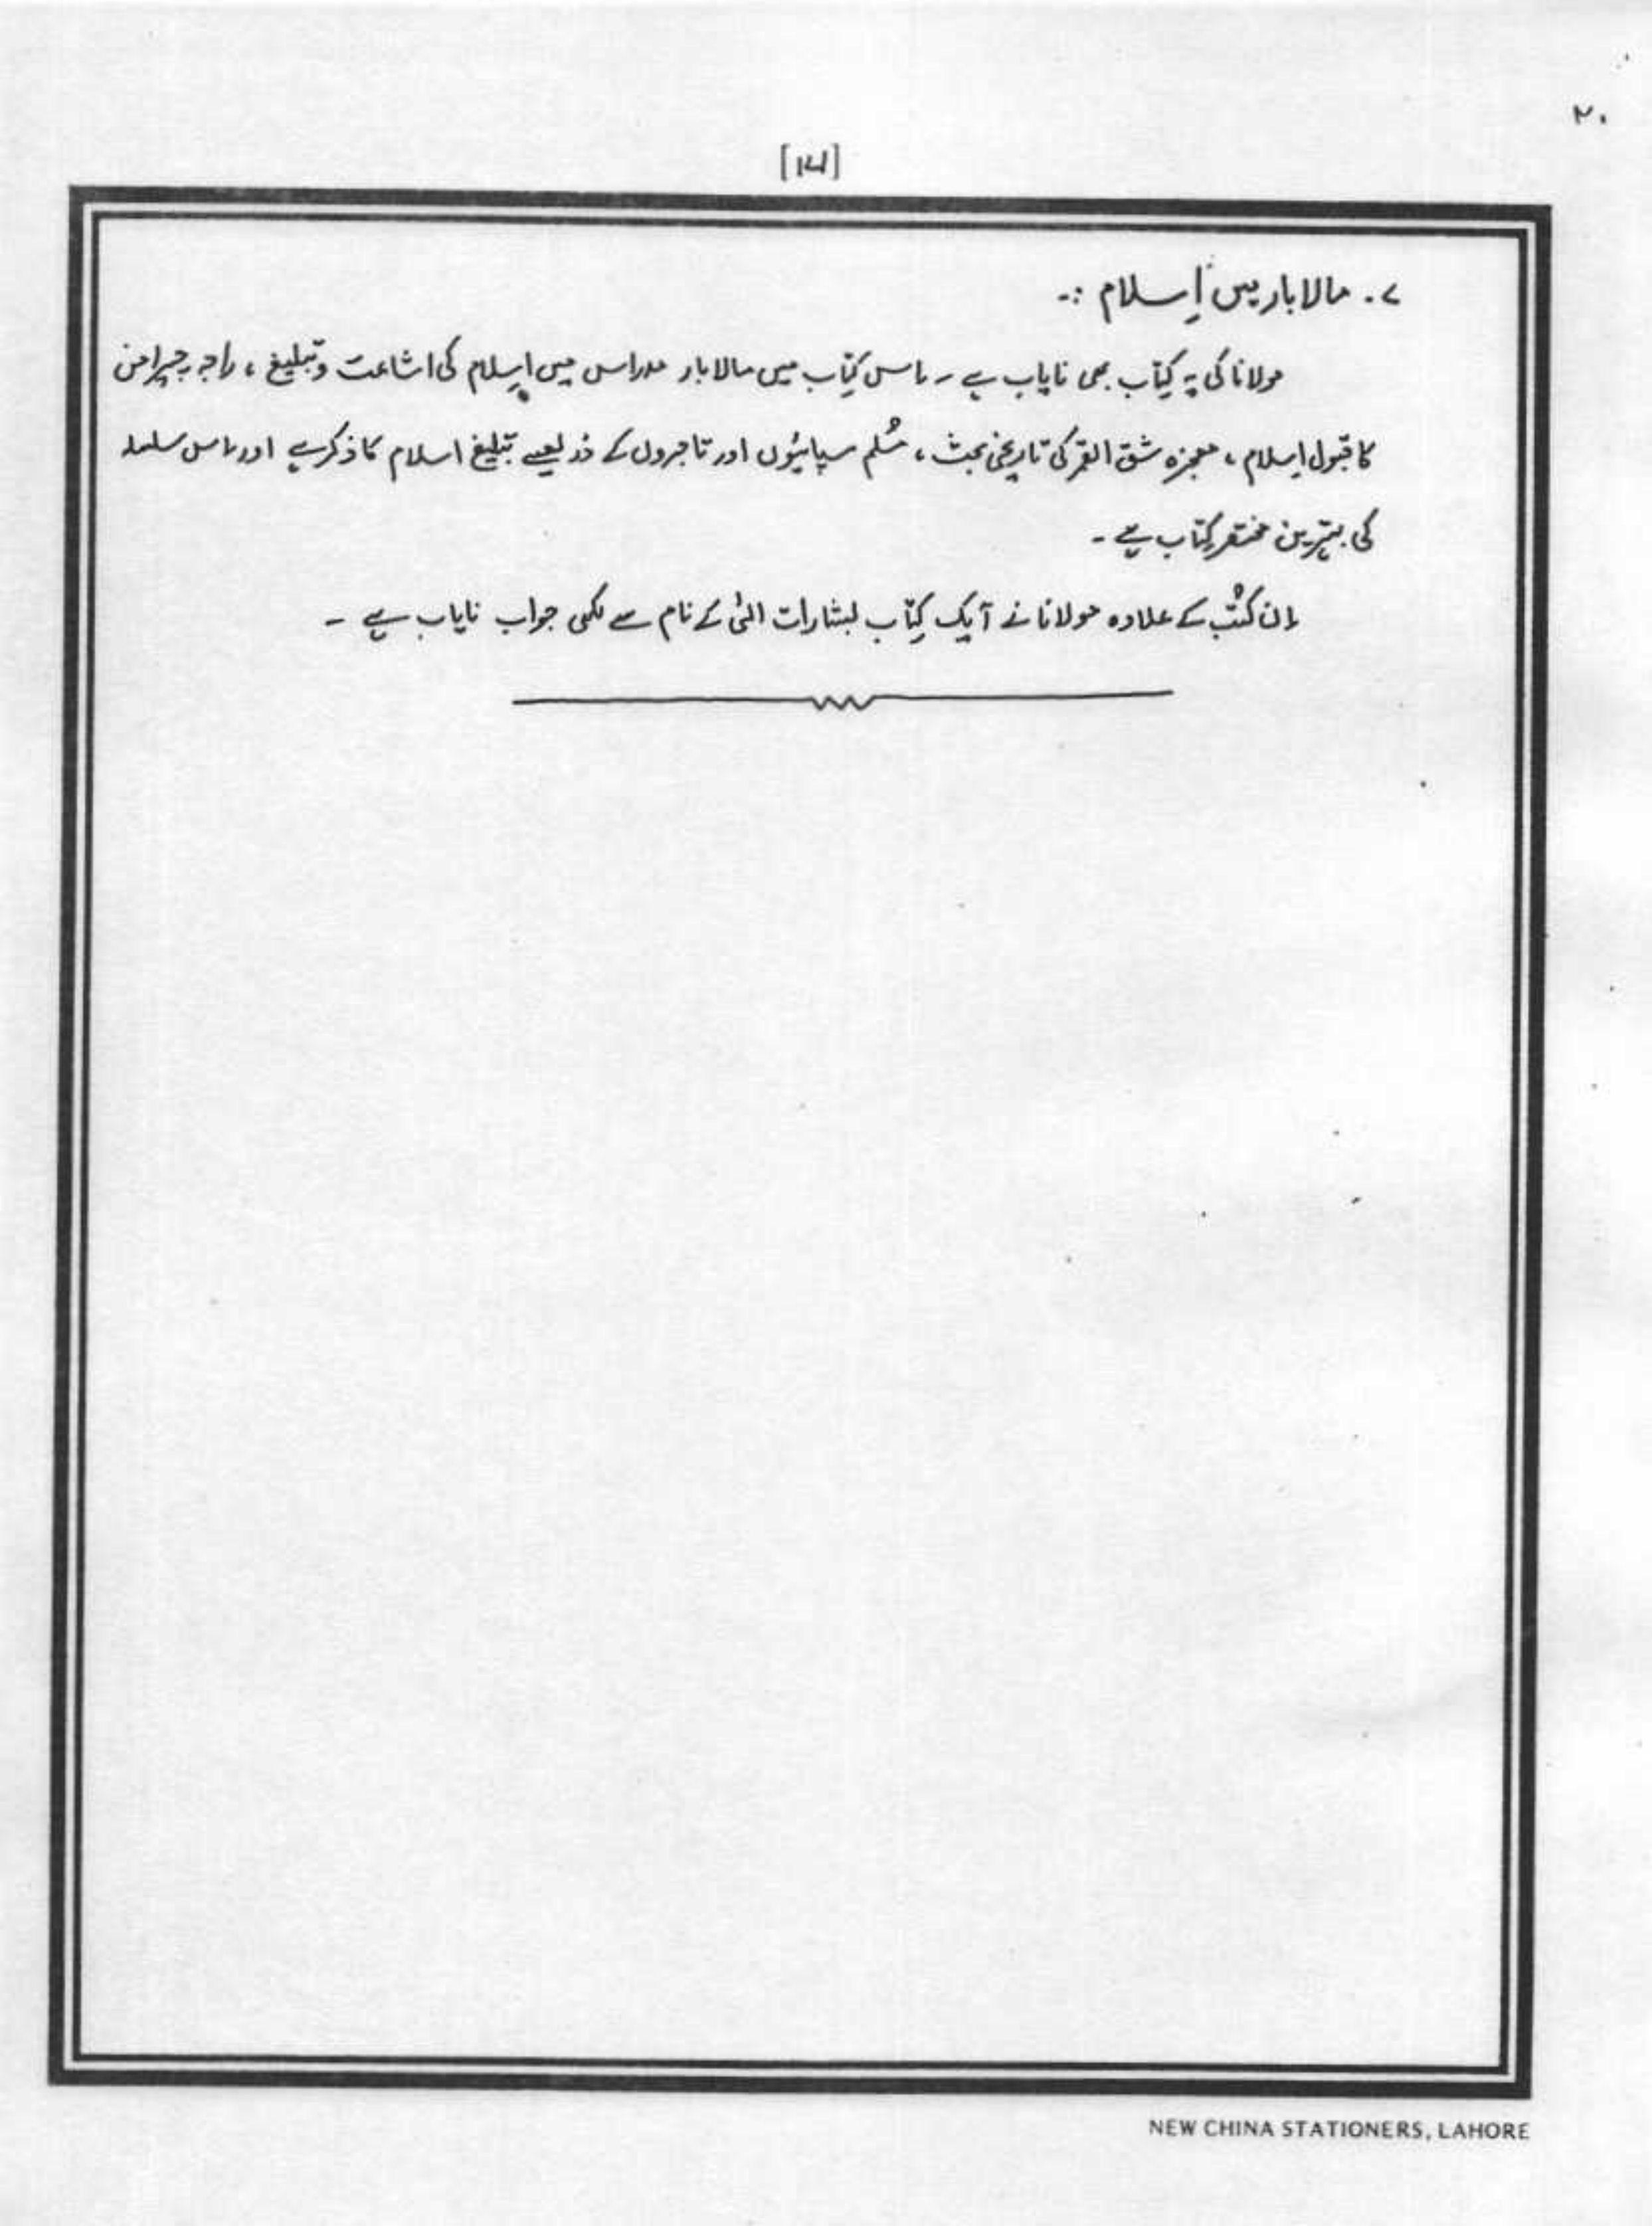 ۲۰
[۱۴]
۷۔ مالابار میں اِسلام :-
مولانا کی یہ کتاب بھی نایاب ہے ۔ اِس کتاب میں مالابار مدراس میں اِسلام کی اشاعت و تبلیغ ، راجہ
کا قبول اِسلام ، معجزہ شق القمر کی تاریخی بحث ، مُسلم سپاہیوں اور تاجروں کے ذریعے تبلیغ اسلام کا ذکر ہے اور اِس سلسلہ
کی بہترین مختصر کتاب ہے ۔
اِن کُتب کے علاوہ مولانا نے ایک کتاب بشارات الٰہی کے نام سے لکھی جو اب نایاب ہے ۔
NEW CHINA STATIONERS, LAHORE